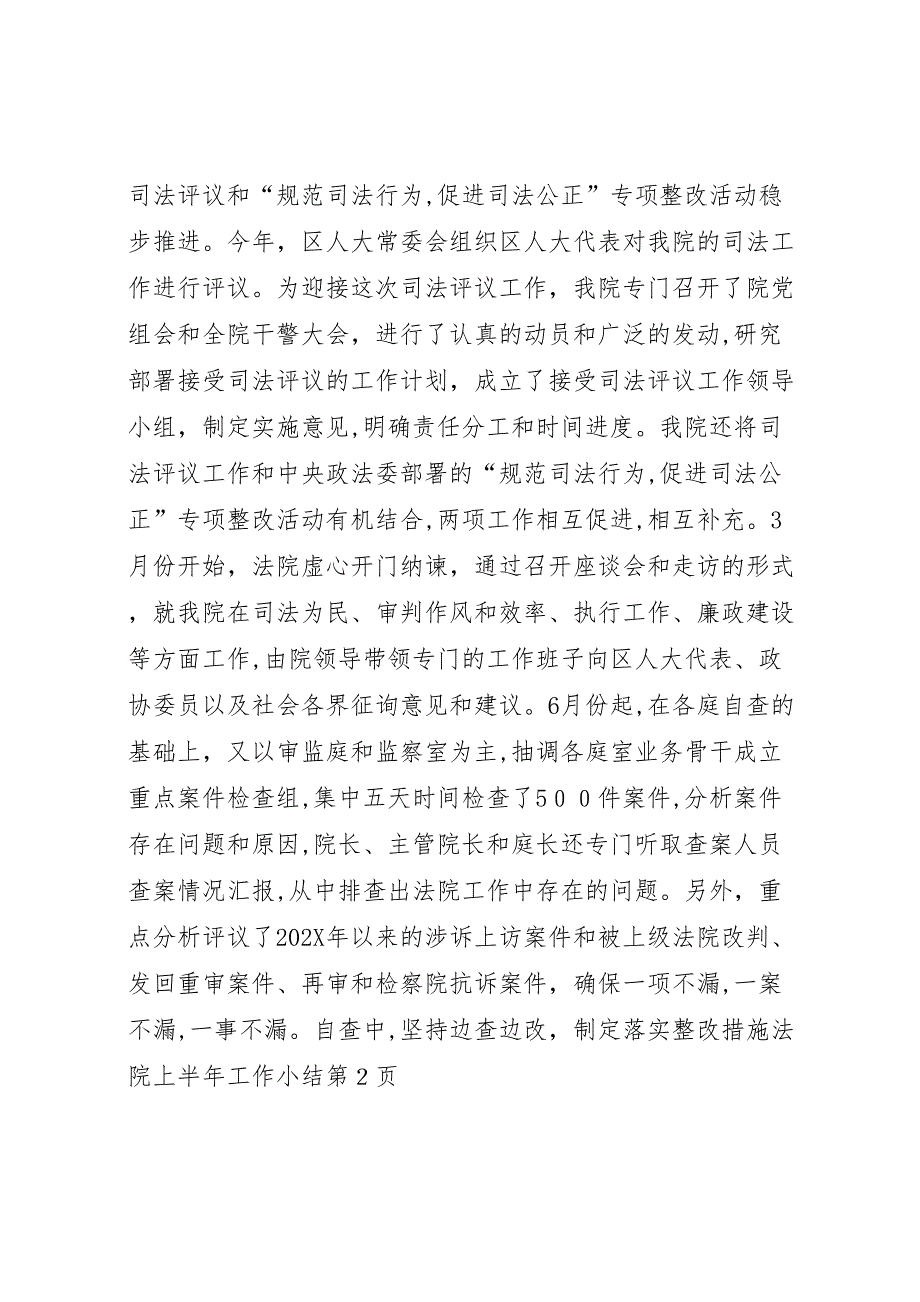 司法评议和“规范司法行为,促进司法公正”专项整改活动稳
步推进。今年，区人大常委会组织区人大代表对我院的司法工
作进行评议。为迎接这次司法评议工作，我院专门召开了院党
组会和全院干警大会，进行了认真的动员和广泛的发动,研究
部署接受司法评议的工作计划，成立了接受司法评议工作领导
小组，制定实施意见,明确责任分工和时间进度。我院还将司
法评议工作和中央政法委部署的“规范司法行为,促进司法公
正”专项整改活动有机结合,两项工作相互促进,相互补充。3
月份开始，法院虚心开门纳谏，通过召开座谈会和走访的形式
，就我院在司法为民、审判作风和效率、执行工作、廉政建设
等方面工作,由院领导带领专门的工作班子向区人大代表、政
协委员以及社会各界征询意见和建议。6月份起,在各庭自查的
基础上，又以审监庭和监察室为主,抽调各庭室业务骨干成立
重点案件检查组,集中五天时间检查了500件案件,分析案件
存在问题和原因,院长、主管院长和庭长还专门听取查案人员
查案情况汇报,从中排查出法院工作中存在的问题。另外，重
点分析评议了202X年以来的涉诉上访案件和被上级法院改判、
发回重审案件、再审和检察院抗诉案件，确保一项不漏,一案
不漏,一事不漏。自查中,坚持边查边改，制定落实整改措施法
院上半年工作小结第2页